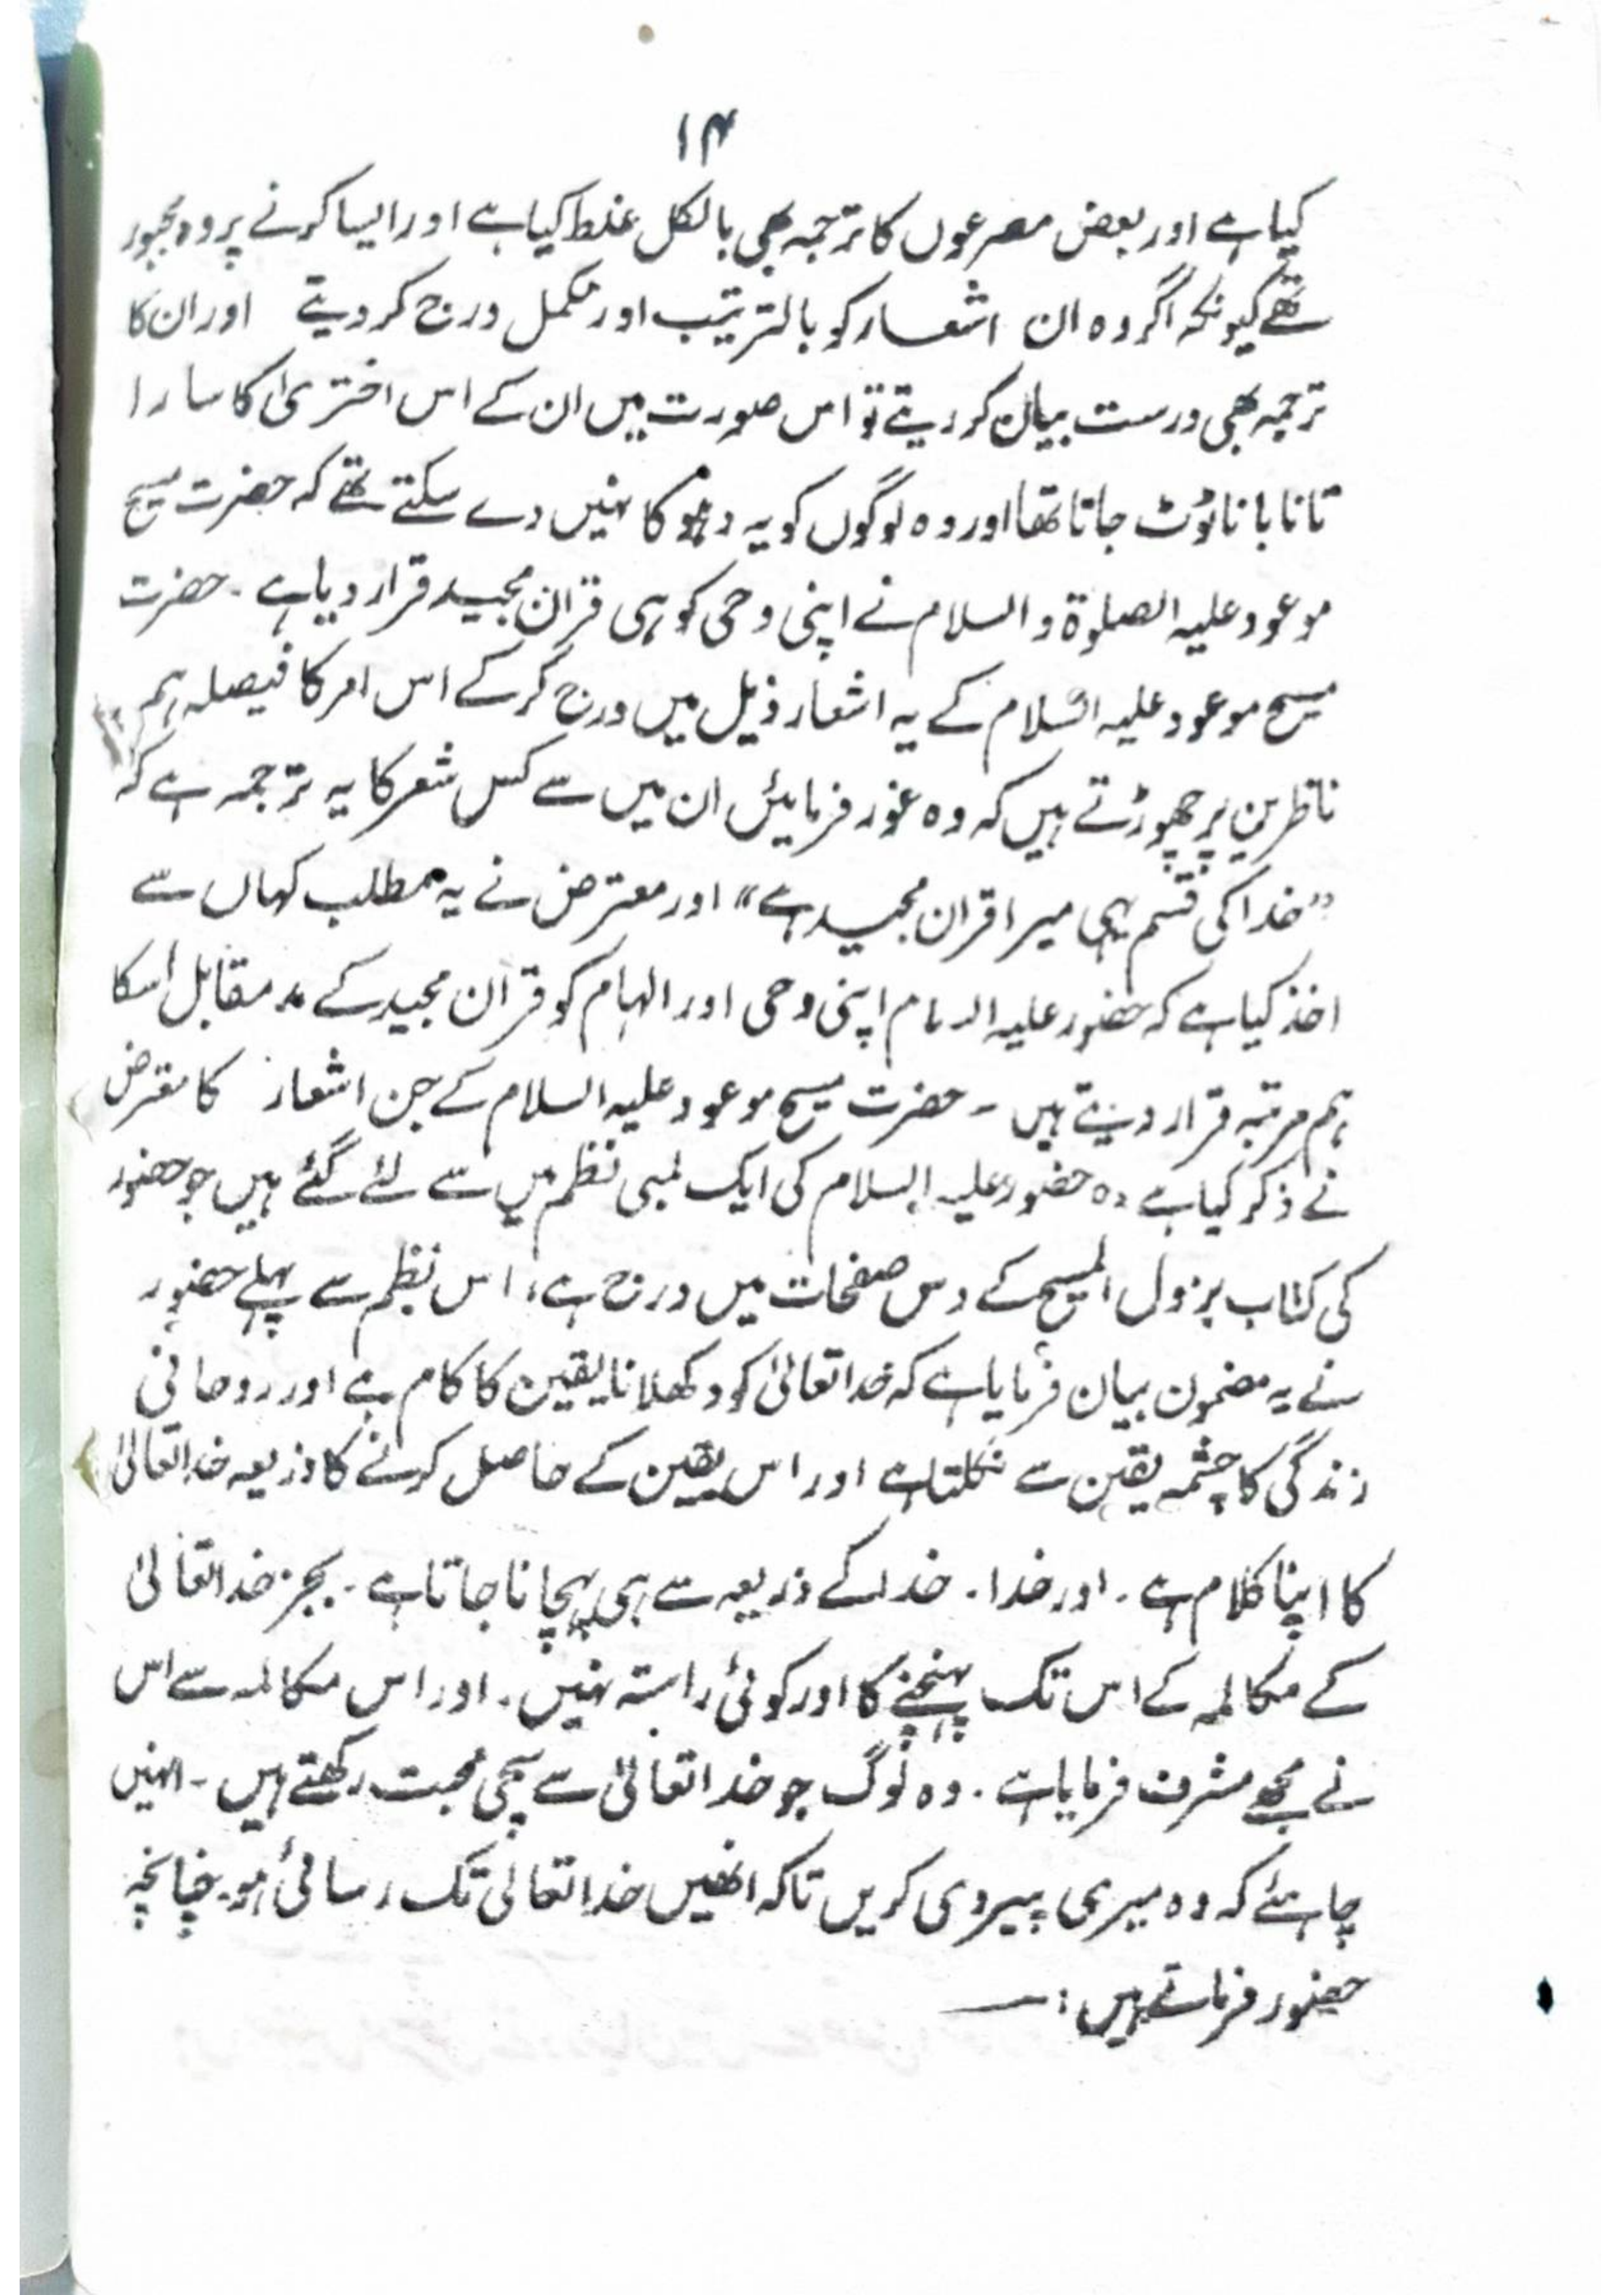 ۱۴
کیا ہے اور بعض مصرعوں کا ترجمہ بھی بالکل غلط کیا ہے اور ایسا کرنے پر وہ مجبور
تھے کیونکہ اگر وہ ان اشعار کو بالترتیب اور مکمل درج کر دیتے اور ان کا
ترجمہ بھی درست بیان کر دیتے تو اس صورت میں ان کے اس اختریٰ کا سارا
تانا بانا ٹوٹ جاتا تھا اور وہ لوگوں کو یہ دھوکا نہیں دے سکتے تھے کہ حضرت مسیح
موعود علیہ الصلوٰة والسلام نے اپنی وحی کو ہی قرآن مجید قرار دیا ہے ۔ حضرت
مسیح موعود علیہ السلام کے یہ اشعار ذیل میں درج کر کے اس امر کا فیصلہ ہم
ناظرین پر چھوڑتے ہیں کہ وہ غور فرمائیں ان میں سے کس شعر کا یہ ترجمہ ہے کہ
”خدا کی قسم یہی میرا قرآن مجید ہے“ اور معترض نے یہ مطلب کہاں سے
اخذ کیا ہے کہ حضور علیہ السلام اپنی وحی اور الہام کو قرآن مجید کے مد مقابل اسکا
ہم مرتبہ قرار دیتے ہیں ۔ حضرت مسیح موعود علیہ السلام کے جن اشعار کا معترض
نے ذکر کیا ہے وہ حضور علیہ السلام کی ایک لمبی نظم میں سے لئے گئے ہیں جو حضور
کی کتاب نزول المسیح کے دس صفحات میں درج ہے، اس نظم سے پہلے حضور
نے یہ مضمون بیان فرمایا ہے کہ خدا تعالیٰ کو دکھلانا یقین کا کام ہے اور روحانی
زندگی کا چشمہ یقین سے نکلتا ہے اور اس یقین کے حاصل کرنے کا ذریعہ خدا تعالیٰ
کا اپنا کلام ہے ۔ اور خدا ۔ خدا کے ذریعہ سے ہی پہچانا جاتا ہے ۔ بجز خدا تعالیٰ
کے مکالمہ کے اس تک پہنچنے کا اور کوئی راستہ نہیں ۔ اور اس مکالمہ سے اس
نے مجھے مشرف فرمایا ہے ۔ وہ لوگ جو خدا تعالیٰ سے سچی محبت رکھتے ہیں ۔ انہیں
چاہئے کہ وہ میری پیروی کریں تاکہ انھیں خدا تعالیٰ تک رسائی ہو ۔ چنانچہ
حضور فرماتے ہیں : ـــ